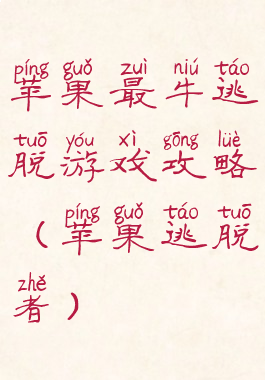 píng guǒ zuì niú táo
苹果最牛逃
tuō yóu xì gōng lüè
脱游戏攻略
píng guǒ táo tuō
（苹果逃脱
zhě
者）